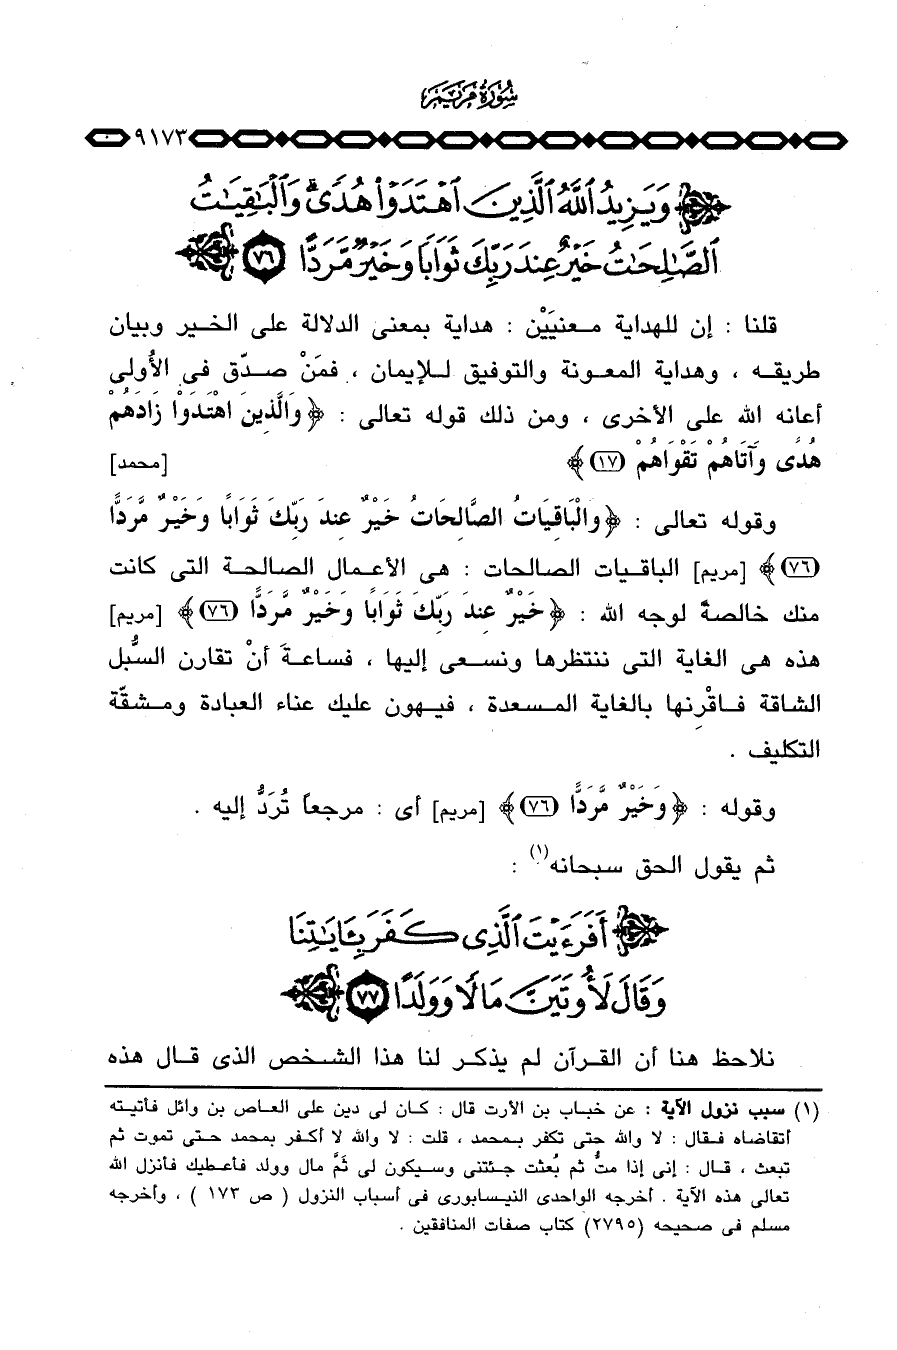 سُورَةُ مَرْيَمَ
٩١٧٣
وَيَزِيدُ ٱللَّهُ ٱلَّذِينَ ٱهْتَدَوْا۟ هُدًى ۗ وَٱلْبَٰقِيَٰتُ
ٱلصَّٰلِحَٰتُ خَيْرٌ عِندَ رَبِّكَ ثَوَابًا وَخَيْرٌ مَّرَدًّا ﴿٧٦﴾
قلنا : إن للهداية معنيَيْن : هداية بمعنى الدلالة على الخير وبيان
طريقه ، وهداية المعونة والتوفيق للإيمان ، فمَنْ صدّق فى الأُولى
أعانه الله على الأخرى ، ومن ذلك قوله تعالى : ﴿ وَالَّذِينَ اهْتَدَوْا زَادَهُمْ
هُدًى وآتَاهُمْ تَقْوَاهُمْ (١٧) ﴾ [محمد]
وقوله تعالى : ﴿ وَالْبَاقِيَاتُ الصَّالِحَاتُ خَيْرٌ عِندَ رَبِّكَ ثَوَابًا وَخَيْرٌ مَّرَدًّا
(٧٦) ﴾ [مريم] الباقيات الصالحات : هى الأعمال الصالحة التى كانت
منك خالصةً لوجه الله : ﴿ خَيْرٌ عِندَ رَبِّكَ ثَوَابًا وَخَيْرٌ مَّرَدًّا (٧٦) ﴾ [مريم]
هذه هى الغاية التى ننتظرها ونسعى إليها ، فساعةَ أنْ تقارن السُّبل
الشاقة فاقْرِنها بالغاية المسعدة ، فيهون عليك عناء العبادة ومشقّة
التكليف .
وقوله : ﴿ وَخَيْرٌ مَّرَدًّا (٧٦) ﴾ [مريم] أى : مرجعاً تُرَدُّ إليه .
ثم يقول الحق سبحانه(١) :
أَفَرَءَيْتَ ٱلَّذِى كَفَرَ بِـَٔايَٰتِنَا
وَقَالَ لَأُوتَيَنَّ مَالًا وَوَلَدًا ﴿٧٧﴾
نلاحظ هنا أن القرآن لم يذكر لنا هذا الشخص الذى قال هذه
(١) سبب نزول الآية : عن خباب بن الأرت قال : كان لى دين على العاص بن وائل فأتيته
أتقاضاه فقال : لا والله حتى تكفر بمحمد ، قلت : لا والله لا أكفر بمحمد حتى تموت ثم
تبعث ، قال : إنى إذا متُّ ثم بُعثت جئتنى وسيكون لى ثَمَّ مال وولد فأعطيك فأنزل الله
تعالى هذه الآية . أخرجه الواحدى النيسابورى فى أسباب النزول ( ص ١٧٣ ) ، وأخرجه
مسلم فى صحيحه (٢٧٩٥) كتاب صفات المنافقين .